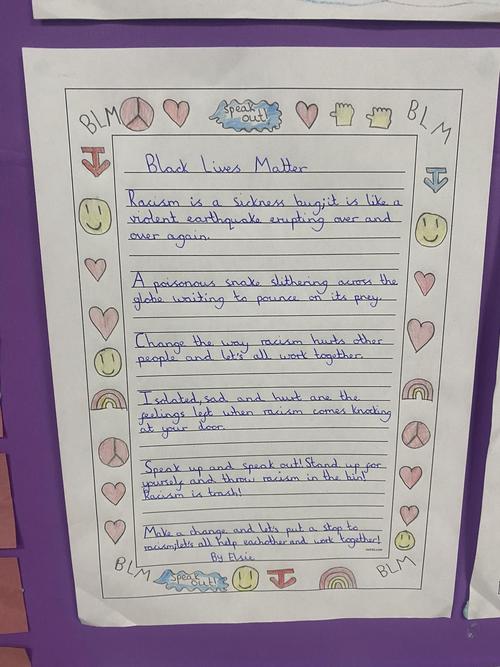 BLM
speak
out!
BLM
Black Lives Matter
Racism is a sickness bug,it is like a
violent earthquake erupting over and
over again.
A poisonous snake slithering across the
globe waiting to pounce on its prey.
Change the way racism hurts other
people and let's all work together.
Isolated, sad and hurt are the
feelings left when racism comes knocking
at your door.
Speak up and speak out! Stand up for
yourself and throw racism in the bin!
Racism is trash!
Make a change and let's put a stop to
racism,let's all help eachother and work together!
By Elsie
BLM
speak
out!
BLM